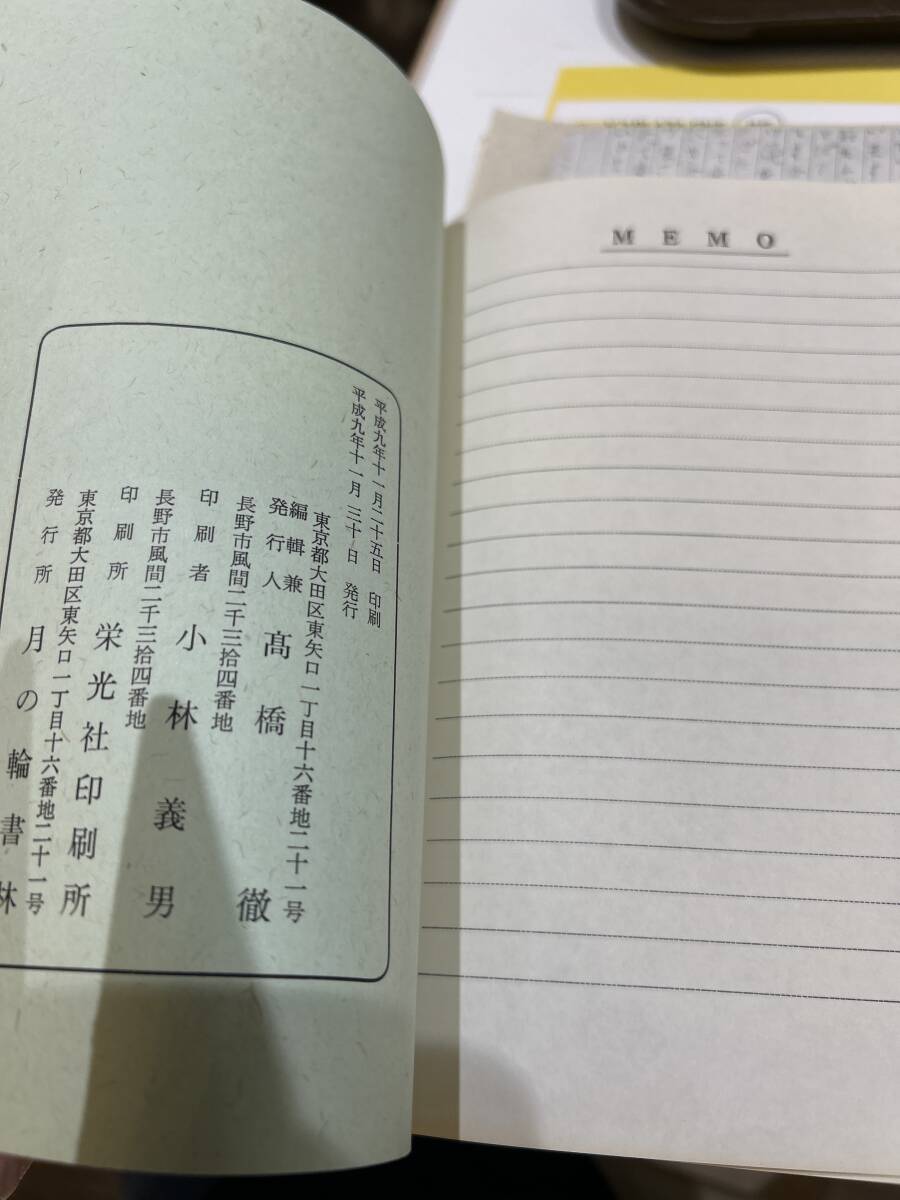 平成九年十一月二十五日 印刷
平成九年十一月三十日 発行
東京都大田区東矢口一丁目十六番地二十一号
編輯兼
発行人 髙橋徹
長野市風間二千三拾四番地
印刷者 小林義男
長野市風間二千三拾四番地
印刷所 栄光社印刷所
東京都大田区東矢口一丁目十六番地二十一号
発行所 月の輪書林
MEMO